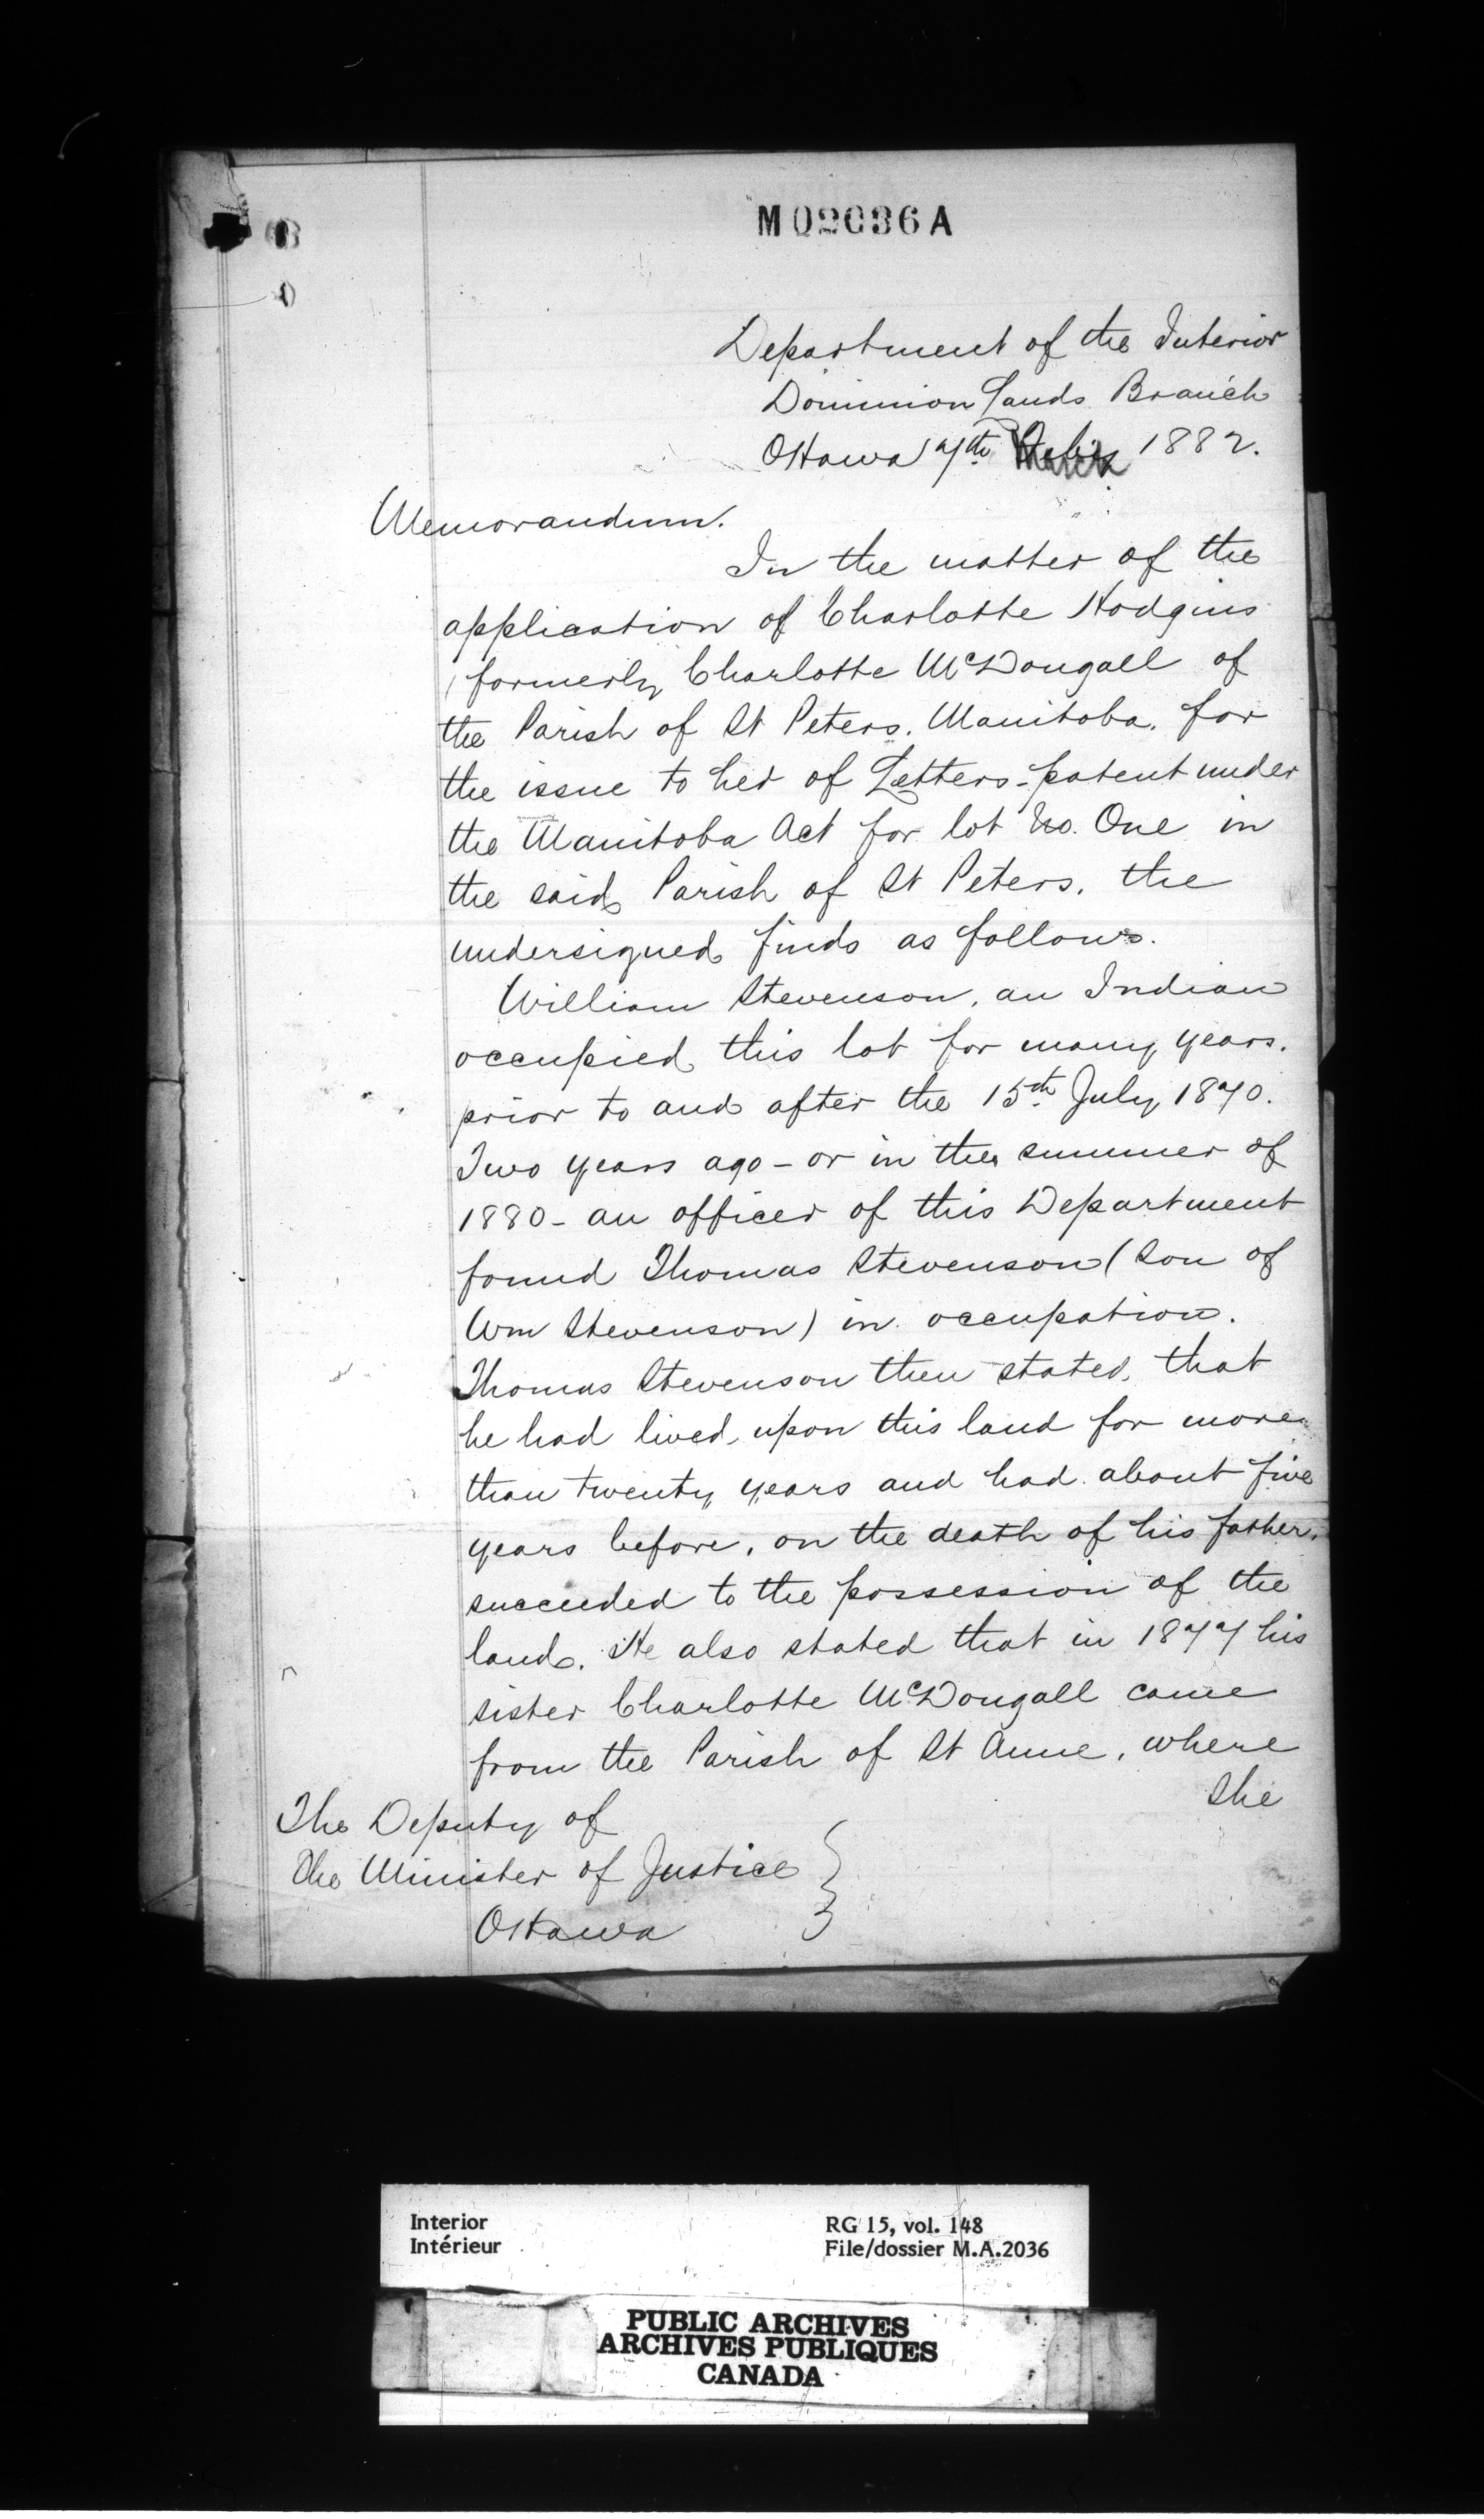 M02036A
Department of the Interior
Dominion Lands Branch
Ottawa 7th March 1882.
Memorandum.
In the matter of the
application of Charlotte Hodgins
(formerly Charlotte McDougall of
the Parish of St Peters, Manitoba, for
the issue to her of Letters-patent under
the Manitoba Act for lot No. One in
the said Parish of St Peters, the
undersigned finds as follows.
William Stevenson, an Indian
occupied this lot for many years,
prior to and after the 15th July, 1870.
Two years ago - or in the summer of
1880 - an officer of this Department
found Thomas Stevenson (Son of
Wm Stevenson) in occupation.
Thomas Stevenson then stated, that
he had lived upon this land for more
than twenty years and had about five
years before, on the death of his father,
succeeded to the possession of the
land. He also stated that in 1877 his
sister Charlotte McDougall came
from the Parish of St Anne, where
She
The Deputy of
the Minister of Justice
Ottawa
Interior
Intérieur
RG 15, vol. 148
File/dossier M.A.2036
PUBLIC ARCHIVES
ARCHIVES PUBLIQUES
CANADA